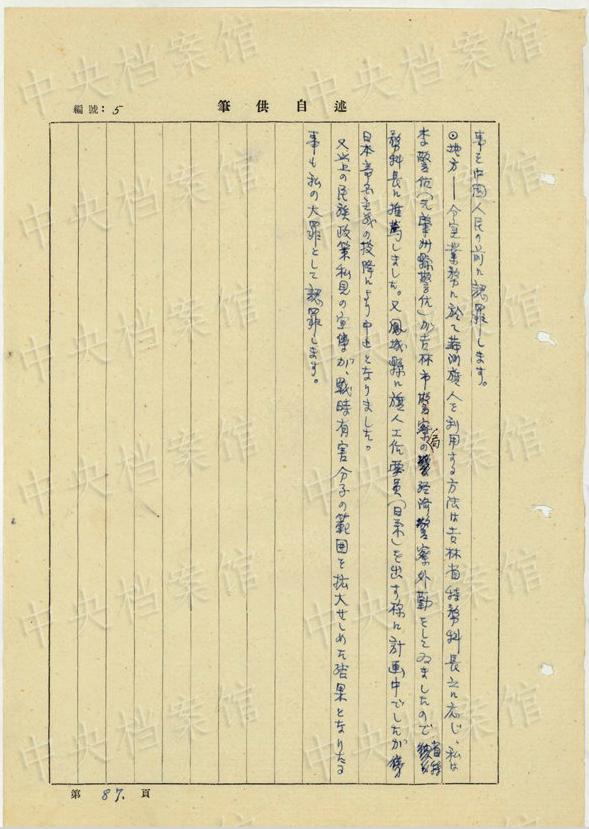 述自供筆
編號：5
事を中国人民の前に認罪します。
◎地方－今室業務に於て満洲旗人を利用する方法は吉林省特務科長之に応じ、私は
李警佐（元肇州縣警佐）が吉林市警察局の経済警察外勤をしてゐましたので省特
務科長に推薦しました。又鳳城縣に旗人工作要員（日系）を出す様に計画中でしたが
日本帝国主義の投降により中止となりました。
又以上の民族政策私見の宣傳が、戦時有害分子の範囲を拡大せしめた結果となりたる
事も私の大罪として認罪します。
第 87. 頁
中央档案馆